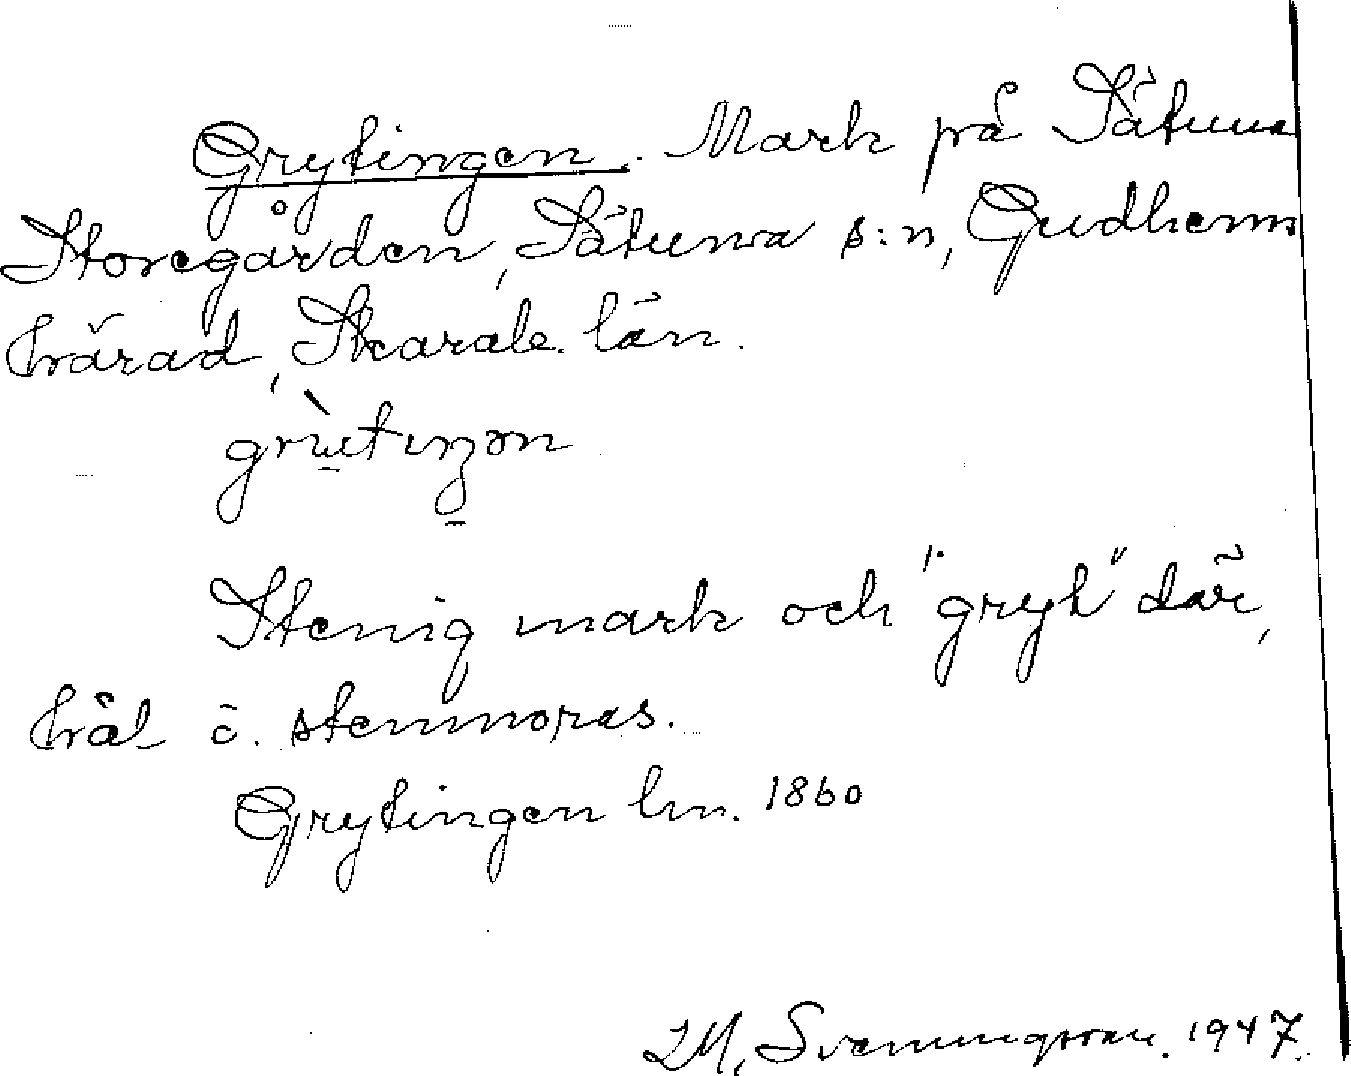 Grytingen. Mark på Sätuna
Storegården, Sätuna s:n, Gudhems
härad, Skarab. län.
Stenig mark och "gryt" där,
häl o. stenmoras.
Grytingen lm. 1860
M. Svenningsson. 1947.